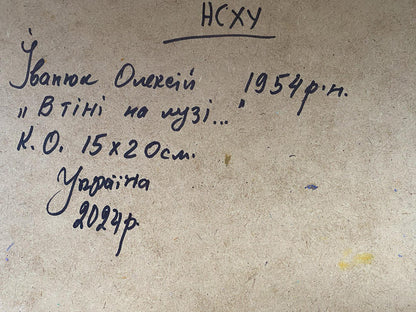 НСХУ
Іванюк Олексій 1954р.н.
„В тіні на лузі..."
К.О. 15х20см.
Україна
2024р